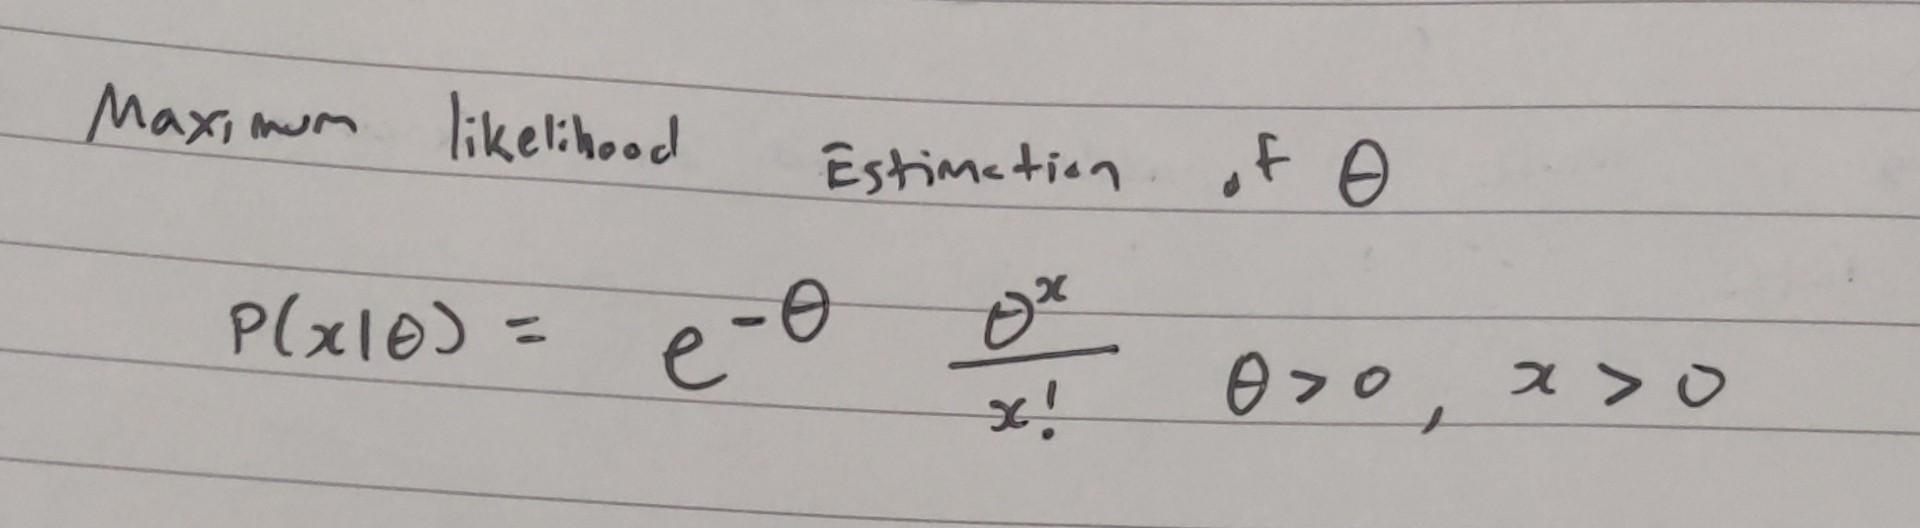 Maximum likelihood Estimation of θ
P(x|θ) = e^{-θ} \frac{θ^x}{x!} θ > 0, x > 0